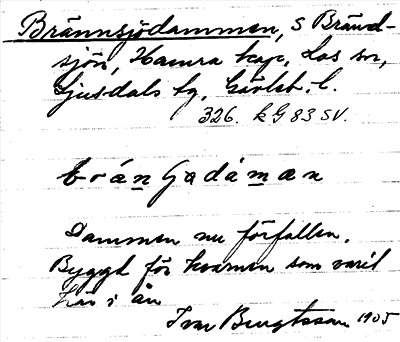 Brännsjödammen, S Bränd-
sjön, Hamra kap, Los sn,
Ljusdals tg, Gävleb. l.
326. kG 83 SV.
Dammen nu förfallen.
Byggt för kvarnen som varit
här i ån
Ivar Bengtsson 1905